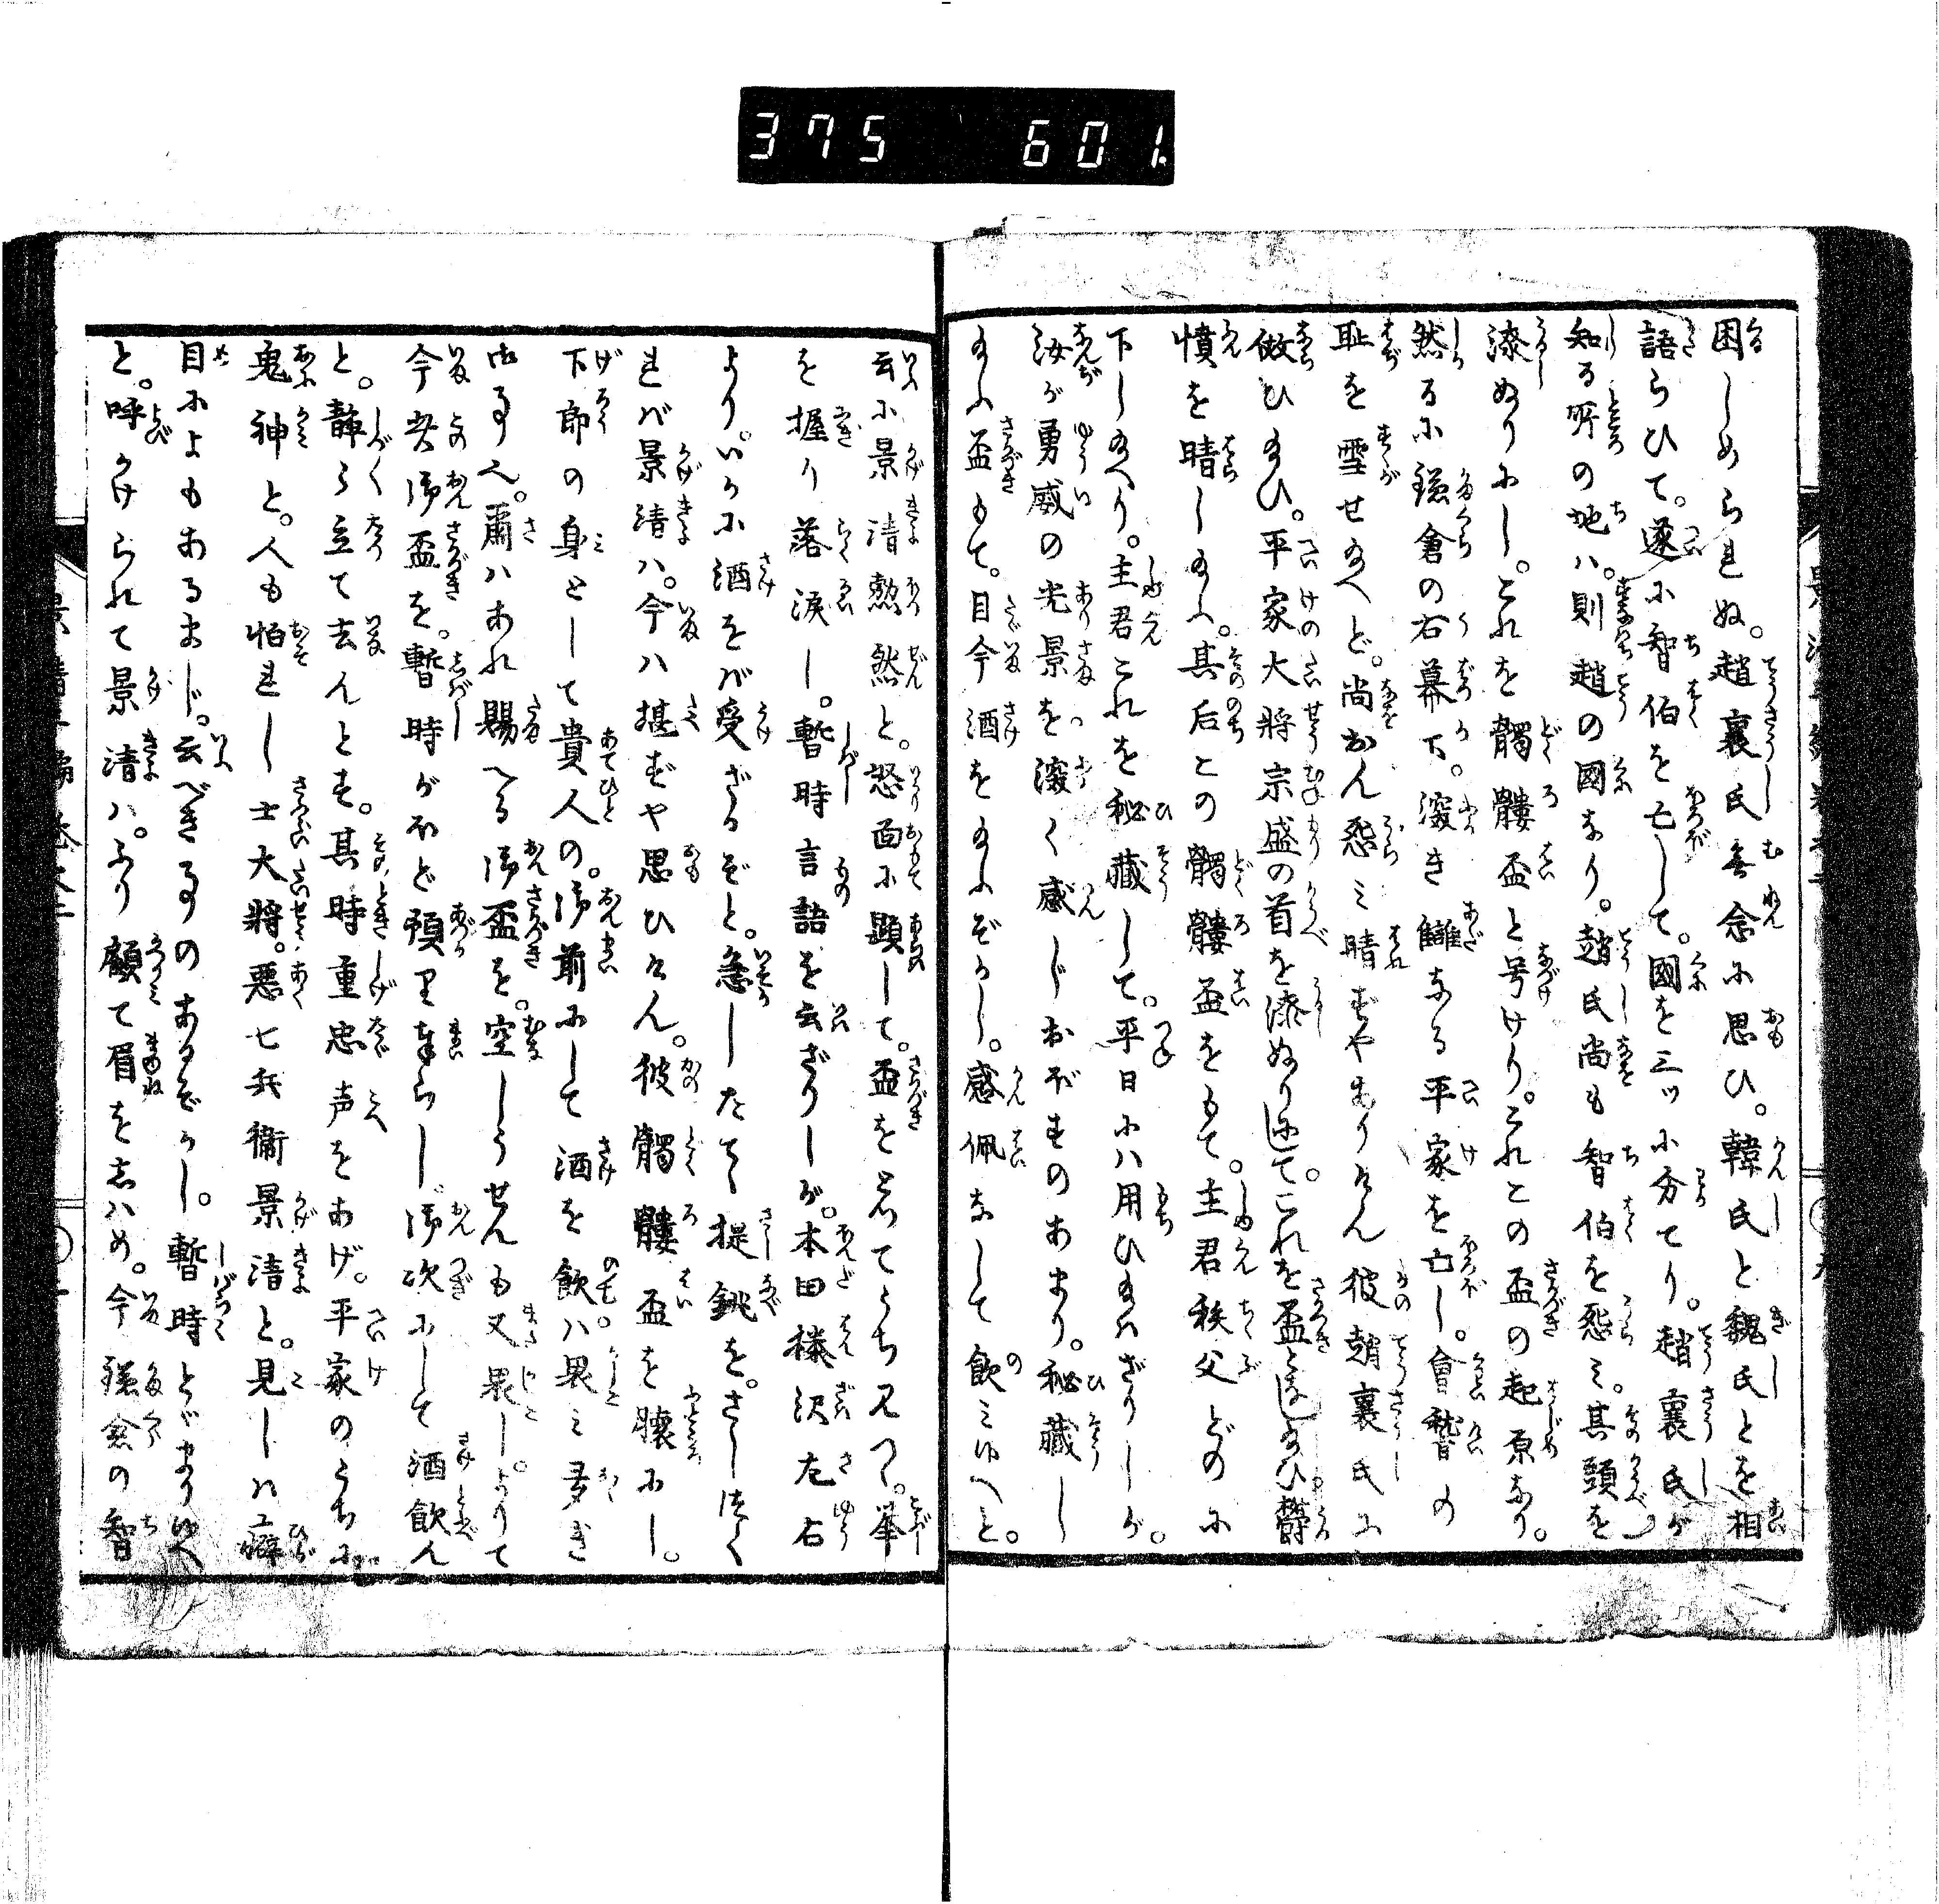 375 601.
困しめられぬ。趙襄氏無念に思ひ。韓氏と魏氏とを相
語らひて。遂に智伯を亡して。國を三ッに分てり。趙襄氏が
知る所の地ハ。則趙の國なり。趙氏尚も智伯を怨ミ。其頭を
漆ぬりにし。これを髑髏盃と号けり。これこの盃の起原なり。
然るに鎌倉の右幕下。深き讎なる平家を亡し。會稽の
耻を雪せ給へど。尚おん怨ミ晴ずやありけん彼趙襄氏に
倣ひ給ひ。平家大将宗盛の首を漆ぬりにして。これを盃となし給ひ欝
憤を晴し給ふ。其后この髑髏盃をもて。主君秩父どのに
下し給へり。主君これを秘蔵して。平日にハ用ひ給ハざりしが。
汝が勇威の光景を深く感じおぼすのあまり。秘蔵し
給ふ盃もて。目今酒を給ふぞかし。感佩なして飲ミ候へと。
云に景清勃然と。怒面に顕して。盃をとつてうち見つ。拳
を握り落涙し。暫時言語を云ざりしが。本田榛沢左右
より。いかに酒をバ受ざるぞと。急したてく提銚を。さしつく
れバ景清ハ。今ハ堪ずや思ひけん。彼髑髏盃を懐にし。
下郎の身として貴人の。御前にして酒を飲ハ畏ミ多き
ゆゑ也。爾ハあれ賜へる御盃を。空しうせんも又畏し。よりて
今茲御盃を。暫時がほど預り奉らし御次にして酒飲ん
と。静く立て去んとす。其時重忠声をあげ。平家のうちに
鬼神と。人も怕れし士大将。悪七兵衛景清と。見しハ僻
目によもあるまじ。云べき事のあるぞかし。暫時とゞまり候へ
と。呼かけられて景清ハ。ふり顧て眉をしハめ。今鎌倉の智